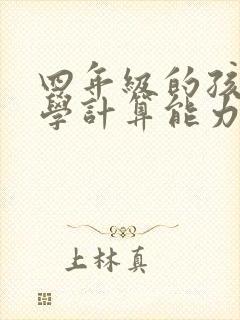 四年級的孩
學計算能力
上林真